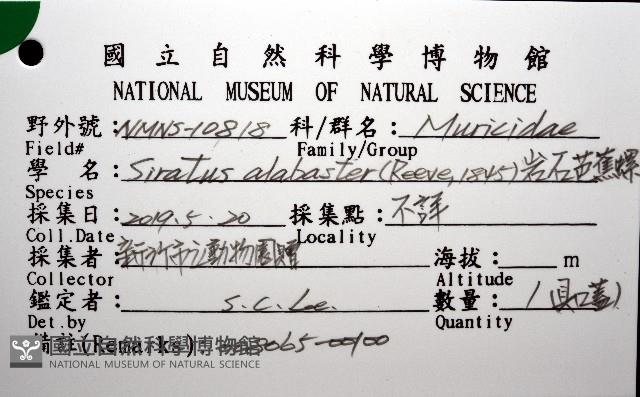 國立自然科學博物館
NATIONAL MUSEUM OF NATURAL SCIENCE
野外號：NMNS-10818 科/群名：Muricidae
Field# Family/Group
學 名：Siratus alabaster (Reeve, 1845) 岩石芭蕉螺
Species
採集日：2019.5.20 採集點：不詳
Coll.Date Locality
採集者：新竹市立動物園贈 海拔：m
Collector Altitude
鑑定者：S.C. Lee 數量：1(具口蓋)
Det.by Quantity
備註(Remarks) 065-00100
國立自然科學博物館
NATIONAL MUSEUM OF NATURAL SCIENCE